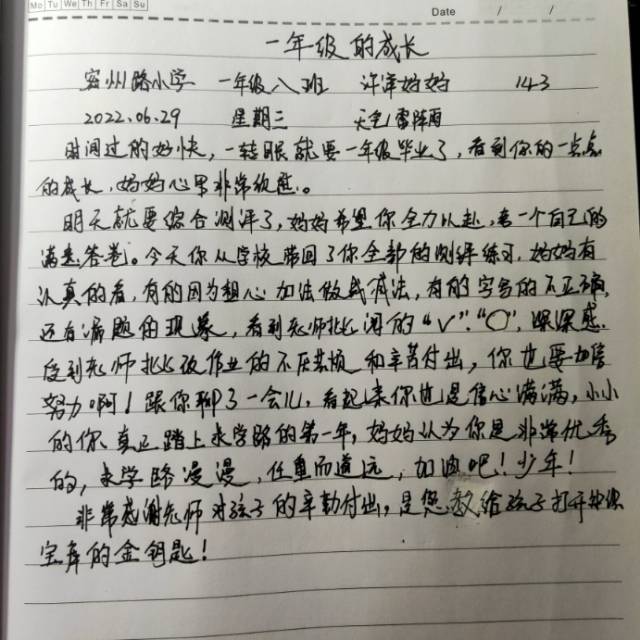 Mo Tu We Th Fr Sa Su
Date / /
一年级的成长
密州路小学 一年级八班 许洋妈妈 143
2022.06.29 星期三 天气/雷阵雨
时间过的好快，一转眼就要一年级毕业了，看到你的一点点
的成长，妈妈心里非常欣慰。
明天就要综合测评了，妈妈希望你全力以赴，考一个自己的
满意答卷。今天你从学校带回了你全部的测评练习，妈妈有
认真的看，有的因为粗心加法做成减法，有的字写的不正确，
还有漏题的现象，看到老师批阅的“√”“○”，深深感
受到老师批改作业的不厌其烦和辛苦付出，你也要加倍
努力啊！跟你聊了一会儿，看起来你也是信心满满，小小
的你真正踏上求学路的第一年，妈妈认为你是非常优秀
的，求学路漫漫，任重而道远，加油吧！少年！
非常感谢老师对孩子的辛勤付出，是您教给孩子打开知识
宝库的金钥匙！